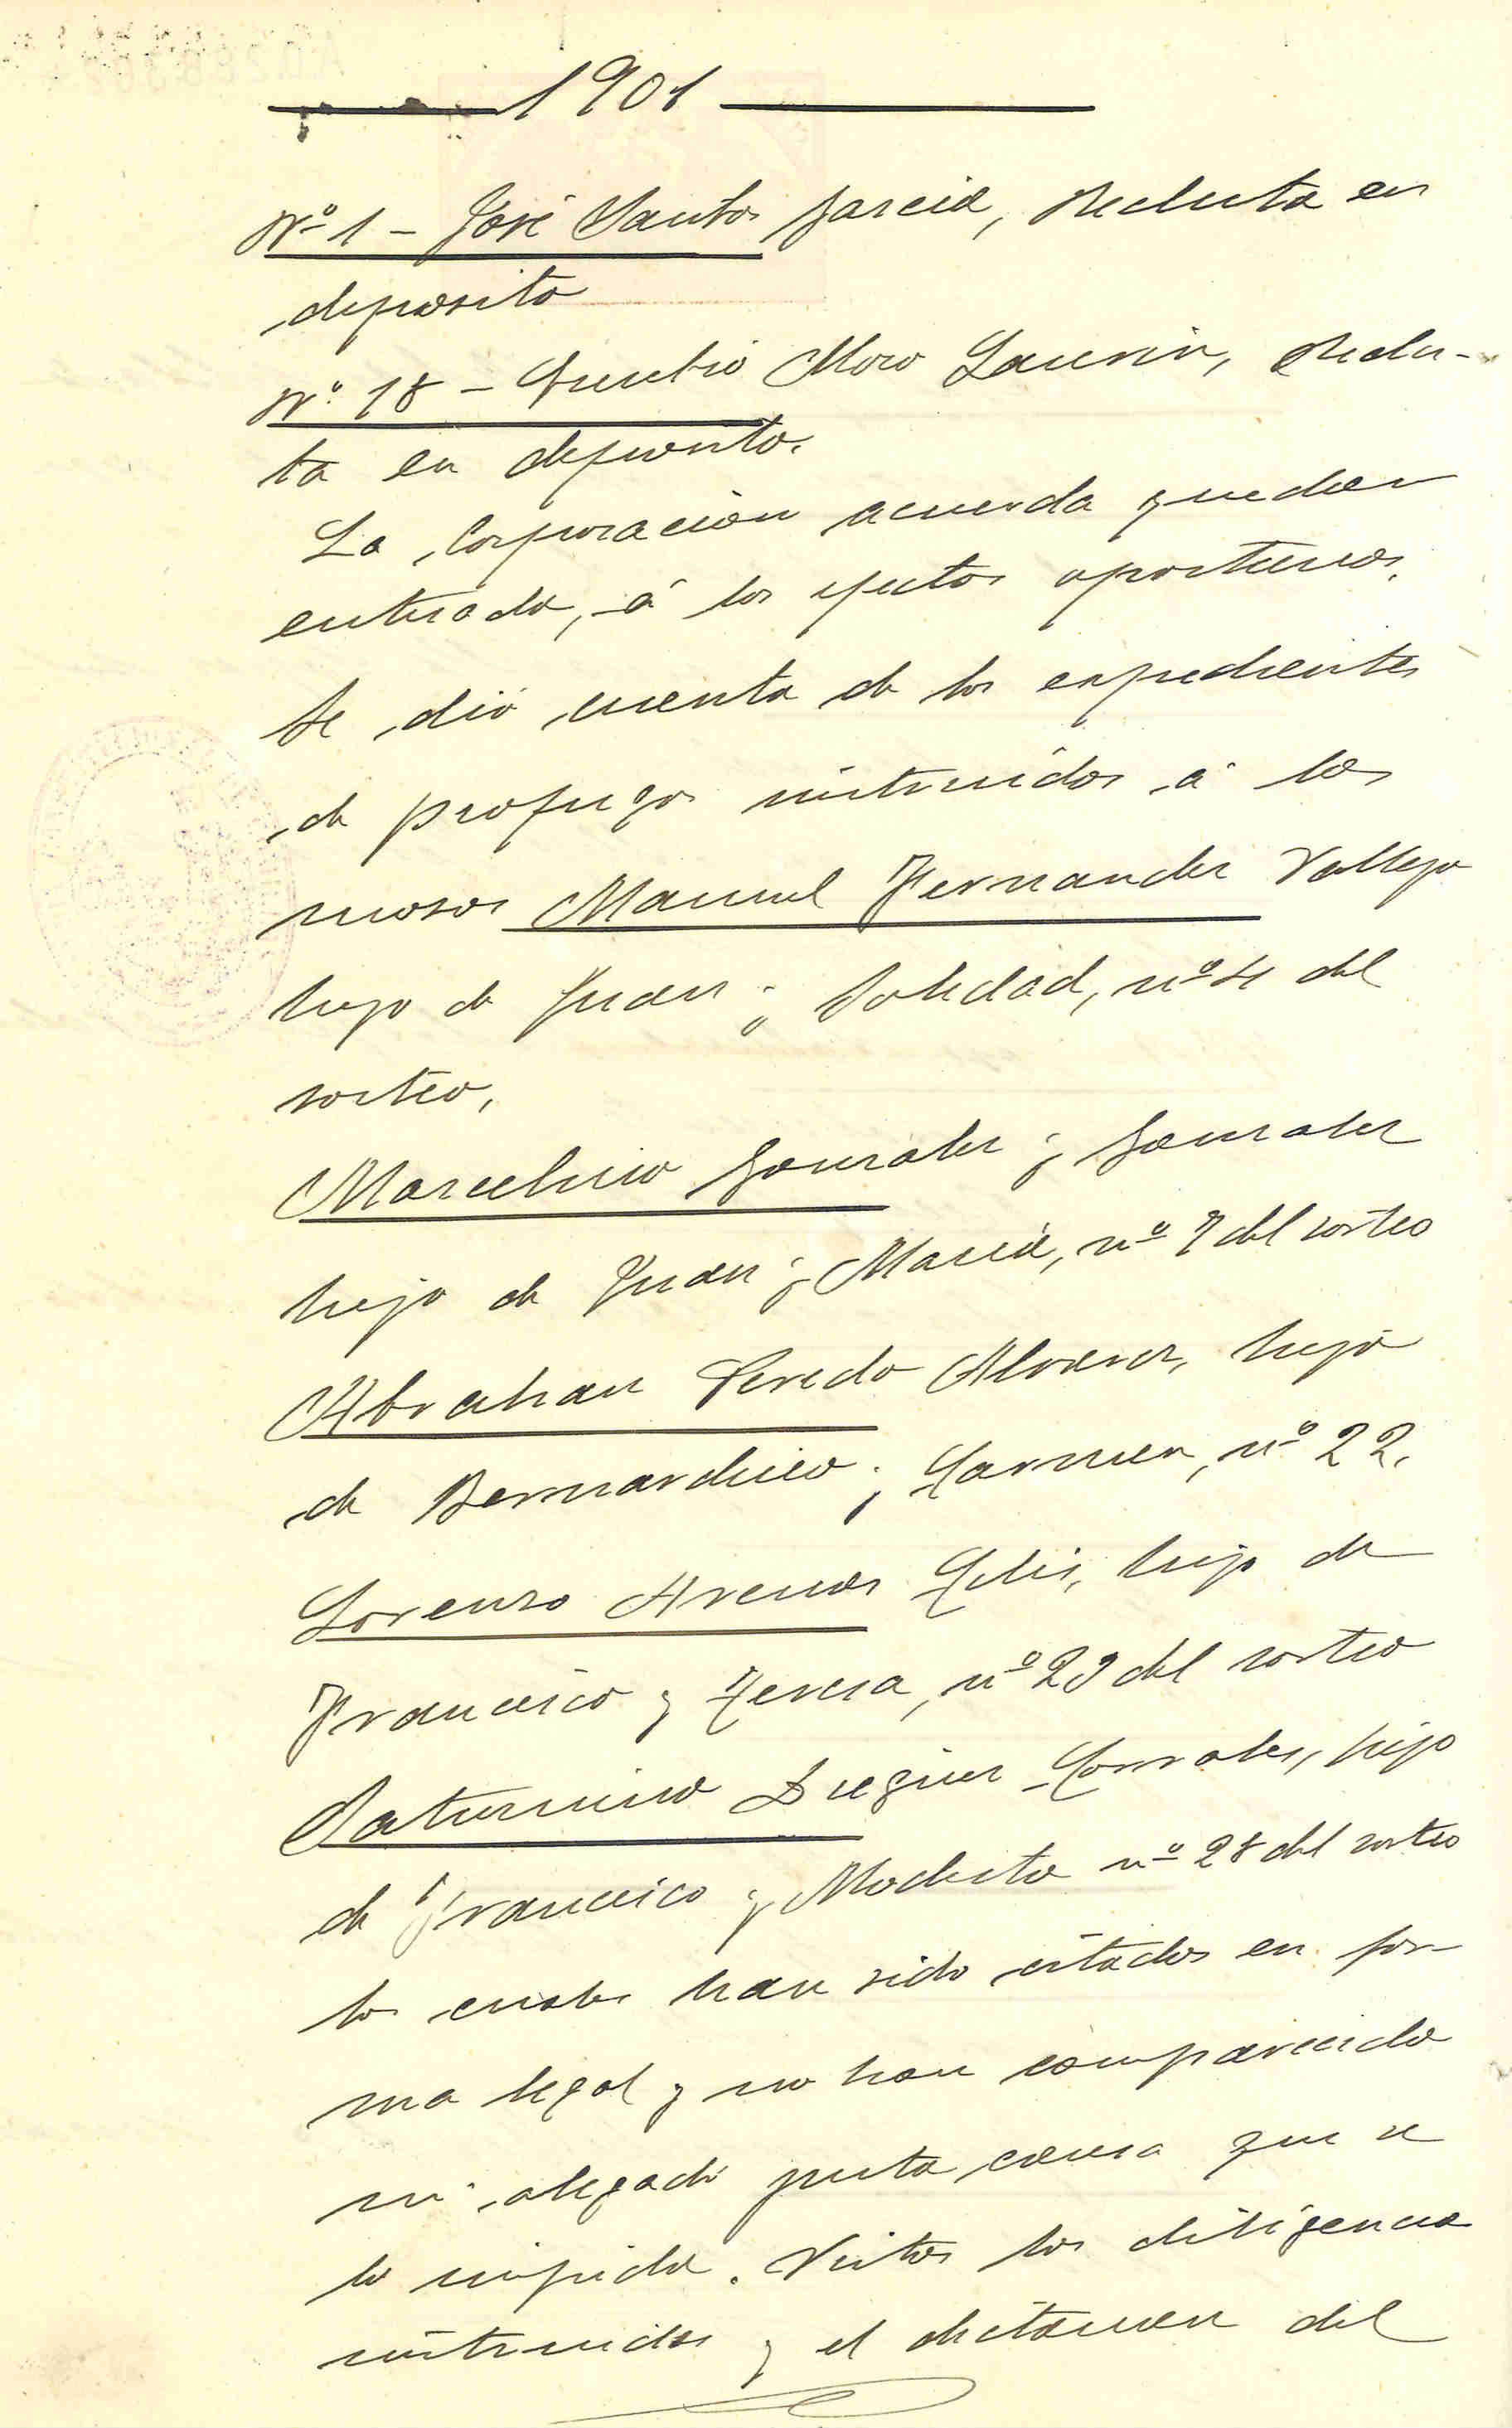 1901
Nº 1 - José Santos García, Recluta en
deposito
Nº 18 - Moro Reclu-
ta en deposito.
La Corporación acuerda quedar
enterada, á los efectos oportunos.
Se dió cuenta de los expedientes
de profugos instruidos á los
mosos Manuel Fernandez Vallejo
hijo de Juan y Soledad, nº 4 del
sorteo,
Marcelino Gonzalez y Gonzalez
hijo de Juan y María, nº 7 del sorteo
Abrahan Alvarez, hijo
de Bernardino y Carmen, nº 22.
Lorenzo Arenas hijo de
Francisco y Teresa, nº 23 del sorteo
Saturnino Corrales, hijo
de Francisco y Modesta nº 28 del sorteo
los cuales han sido citados en for-
ma legal y no han comparecido
ni alegado justa causa que se
lo impida. Vistas las diligencias
instruidas y el dictamen del